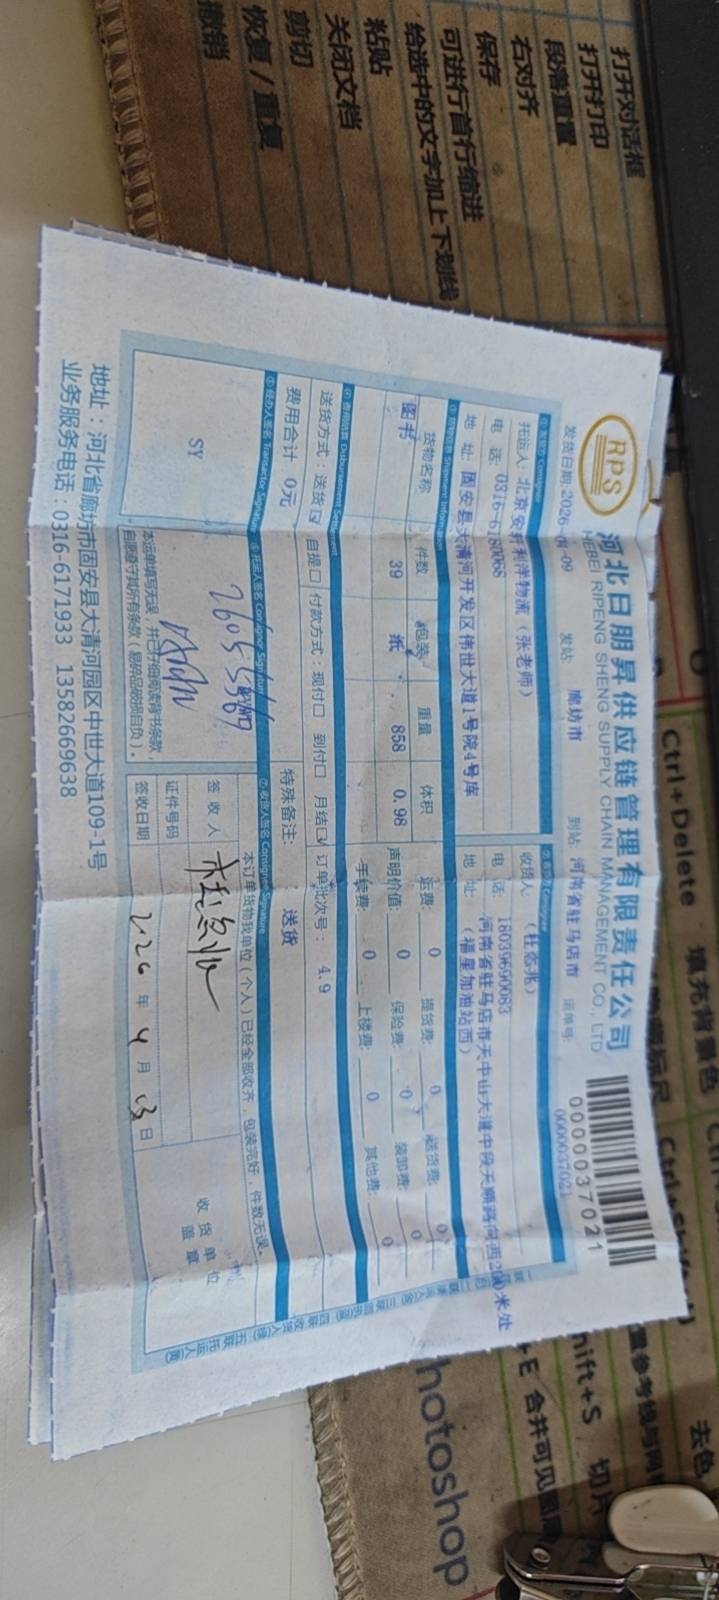 RPS
河北日朋昇供应链管理有限责任公司
HEBEI RIPENG SHENG SUPPLY CHAIN MANAGEMENT CO., LTD
0000037021
发货日期:2026 09 发站: 廊坊市 到站: 河南省驻马店市 运单号: 0000037021
托运人: 北京安轩利洋物流（张老师）
电 话: 0316-6180068
地 址: 固安县大清河开发区伟世大道1号院4号库
收货人:
电话: 18039690083
地 址: 河南省驻马店市天中山大道中段天顺路向西200米处（福星加油站西）
货物名称 件数 包装 重量 体积
图书 39 纸 858 0.98
运费: 0 提货费: 0 送货费: 0
声明价值: 0 保险费: 0 装卸费: 0
手续费: 0 上楼费: 0 其他费: 0
送货方式：送货☑ 自提□ 付款方式：现付□ 到付□ 月结☑ 订单批次号: 4.9
费用合计 0元 特殊备注: 送货
SY
本运单填写无误，并已仔细阅读背书条款，
自愿遵守其所有条款（易碎品破损自负）。
本订单货物我单位（个人）已经全部收齐，包装完好，件数无误。
签 收 人
证件号码
签收日期 2026 年 4 月 13 日
收 货 单 位
盖 章
地址：河北省廊坊市固安县大清河园区中世大道109-1号
业务服务电话：0316-6171933 13582669638
打开对话框
打开打印
段落重置
右对齐
保存
可进行首行缩进
给选中的文字加上下划线
粘贴
关闭文档
剪切
恢复 / 重复
撤销
Ctrl+Delete 填充背景色
合并可见图层
hotoshop